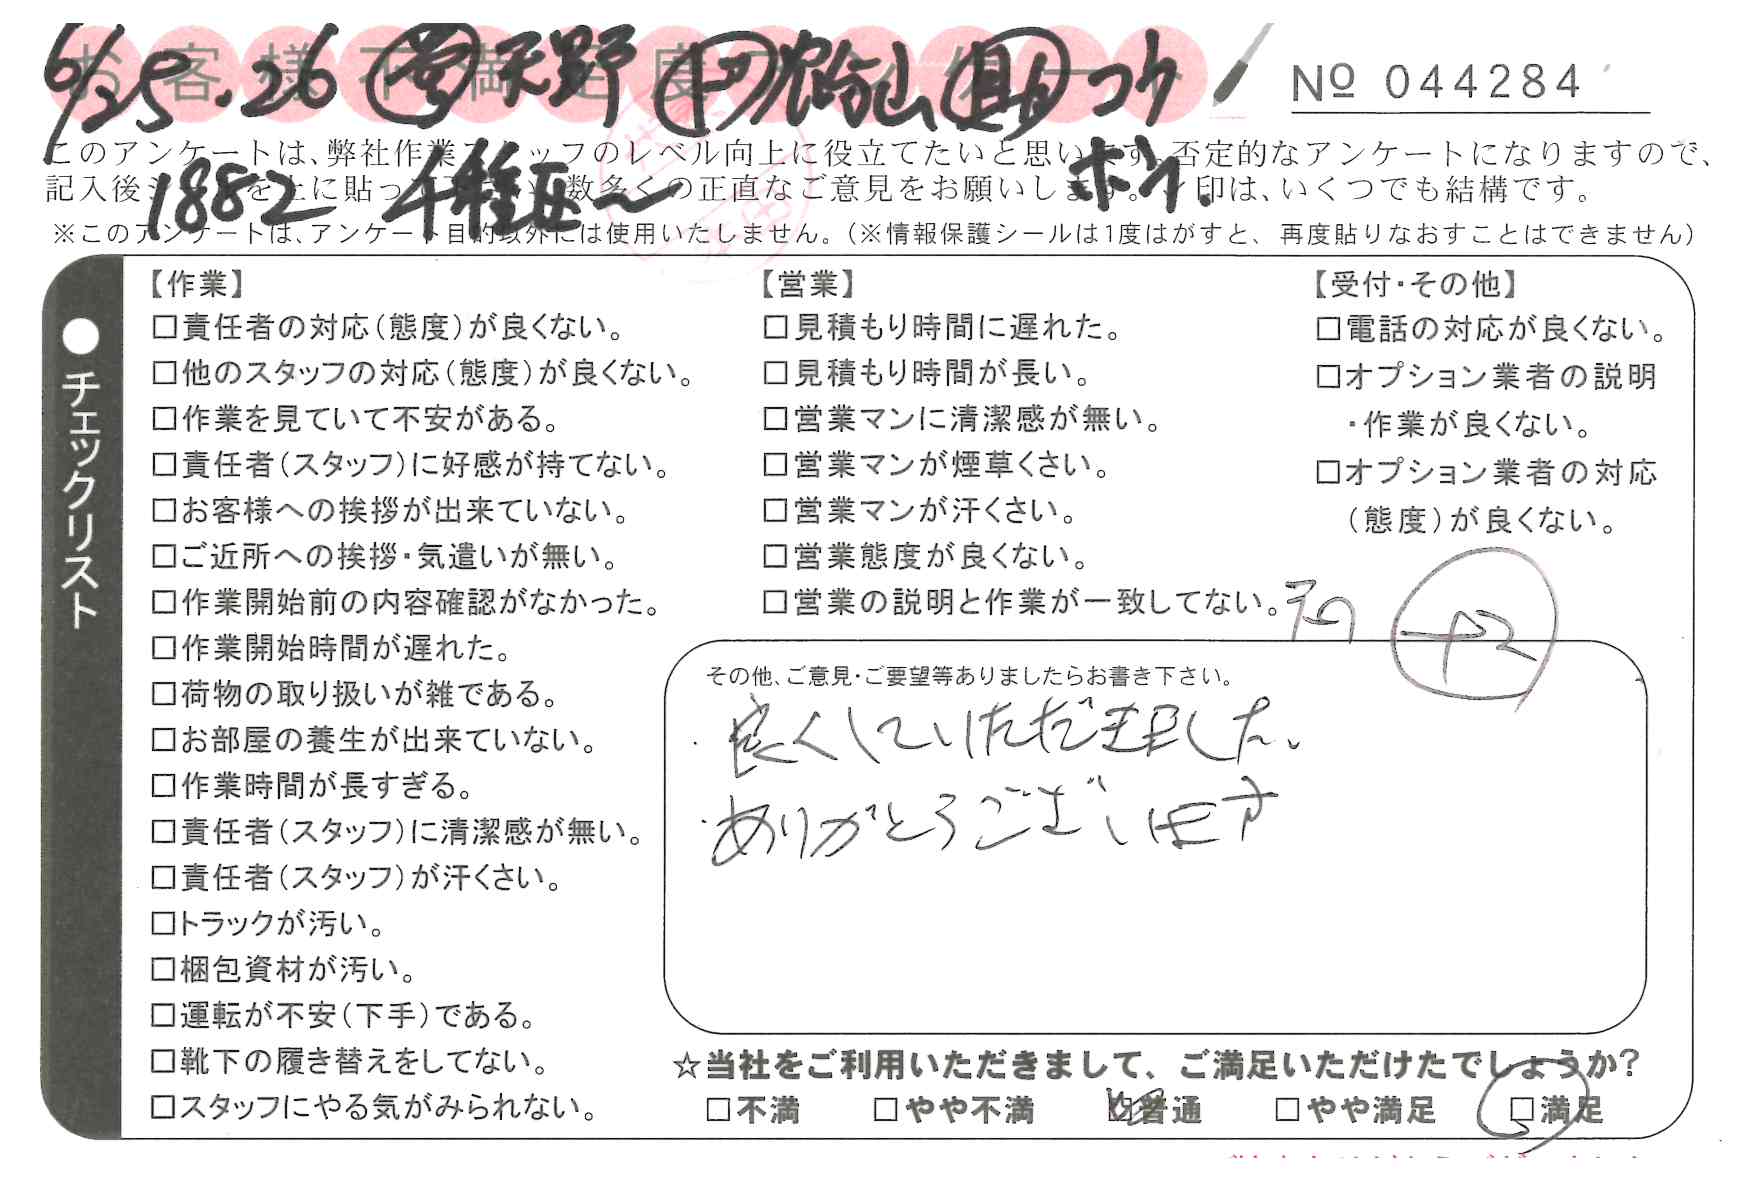 お客様不満足度アンケート
6/25.26 営 天野 ト 鶴山
No 044284
このアンケートは、弊社作業スタッフのレベル向上に役立てたいと思います。否定的なアンケートになりますので、
記入後シールを上に貼って下さい。数多くの正直なご意見をお願いします。レ印は、いくつでも結構です。
1882 千種区〜
※このアンケートは、アンケート目的以外には使用いたしません。(※情報保護シールは1度はがすと、再度貼りなおすことはできません)
●チェックリスト
【作業】
□責任者の対応(態度)が良くない。
□他のスタッフの対応(態度)が良くない。
□作業を見ていて不安がある。
□責任者(スタッフ)に好感が持てない。
□お客様への挨拶が出来ていない。
□ご近所への挨拶・気遣いが無い。
□作業開始前の内容確認がなかった。
□作業開始時間が遅れた。
□荷物の取り扱いが雑である。
□お部屋の養生が出来ていない。
□作業時間が長すぎる。
□責任者(スタッフ)に清潔感が無い。
□責任者(スタッフ)が汗くさい。
□トラックが汚い。
□梱包資材が汚い。
□運転が不安(下手)である。
□靴下の履き替えをしてない。
□スタッフにやる気がみられない。
【営業】
□見積もり時間に遅れた。
□見積もり時間が長い。
□営業マンに清潔感が無い。
□営業マンが煙草くさい。
□営業マンが汗くさい。
□営業態度が良くない。
□営業の説明と作業が一致してない。
【受付・その他】
□電話の対応が良くない。
□オプション業者の説明
・作業が良くない。
□オプション業者の対応
(態度)が良くない。
+2
その他、ご意見・ご要望等ありましたらお書き下さい。
・良くしていただきました。
・ありがとうございます
☆当社をご利用いただきまして、ご満足いただけたでしょうか?
□不満 □やや不満 □普通 □やや満足 □満足